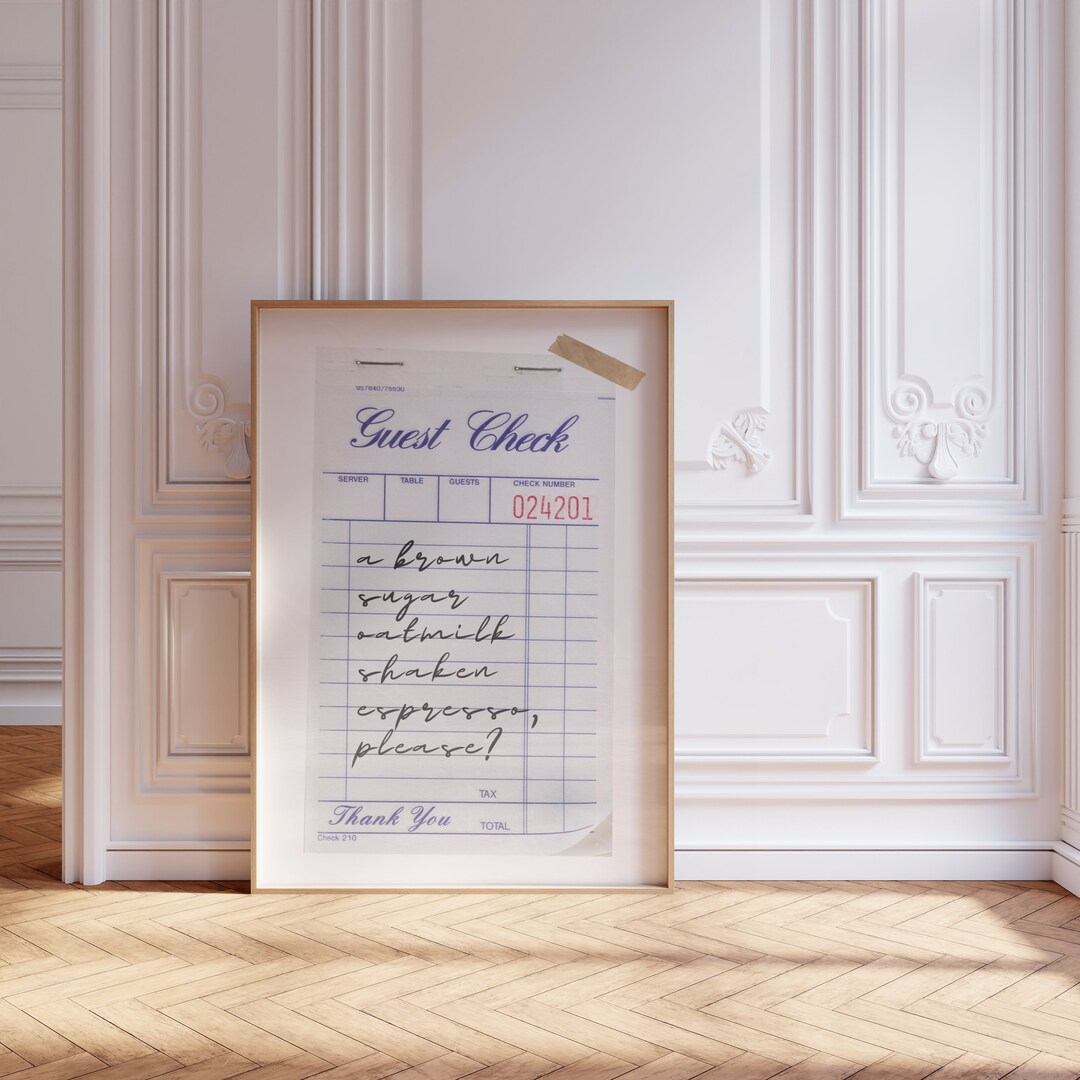 957640/76930
Guest Check
SERVER TABLE GUESTS CHECK NUMBER
024201
a brown
sugar
oatmilk
shaken
espresso,
please?
TAX
Thank You TOTAL
Check 210